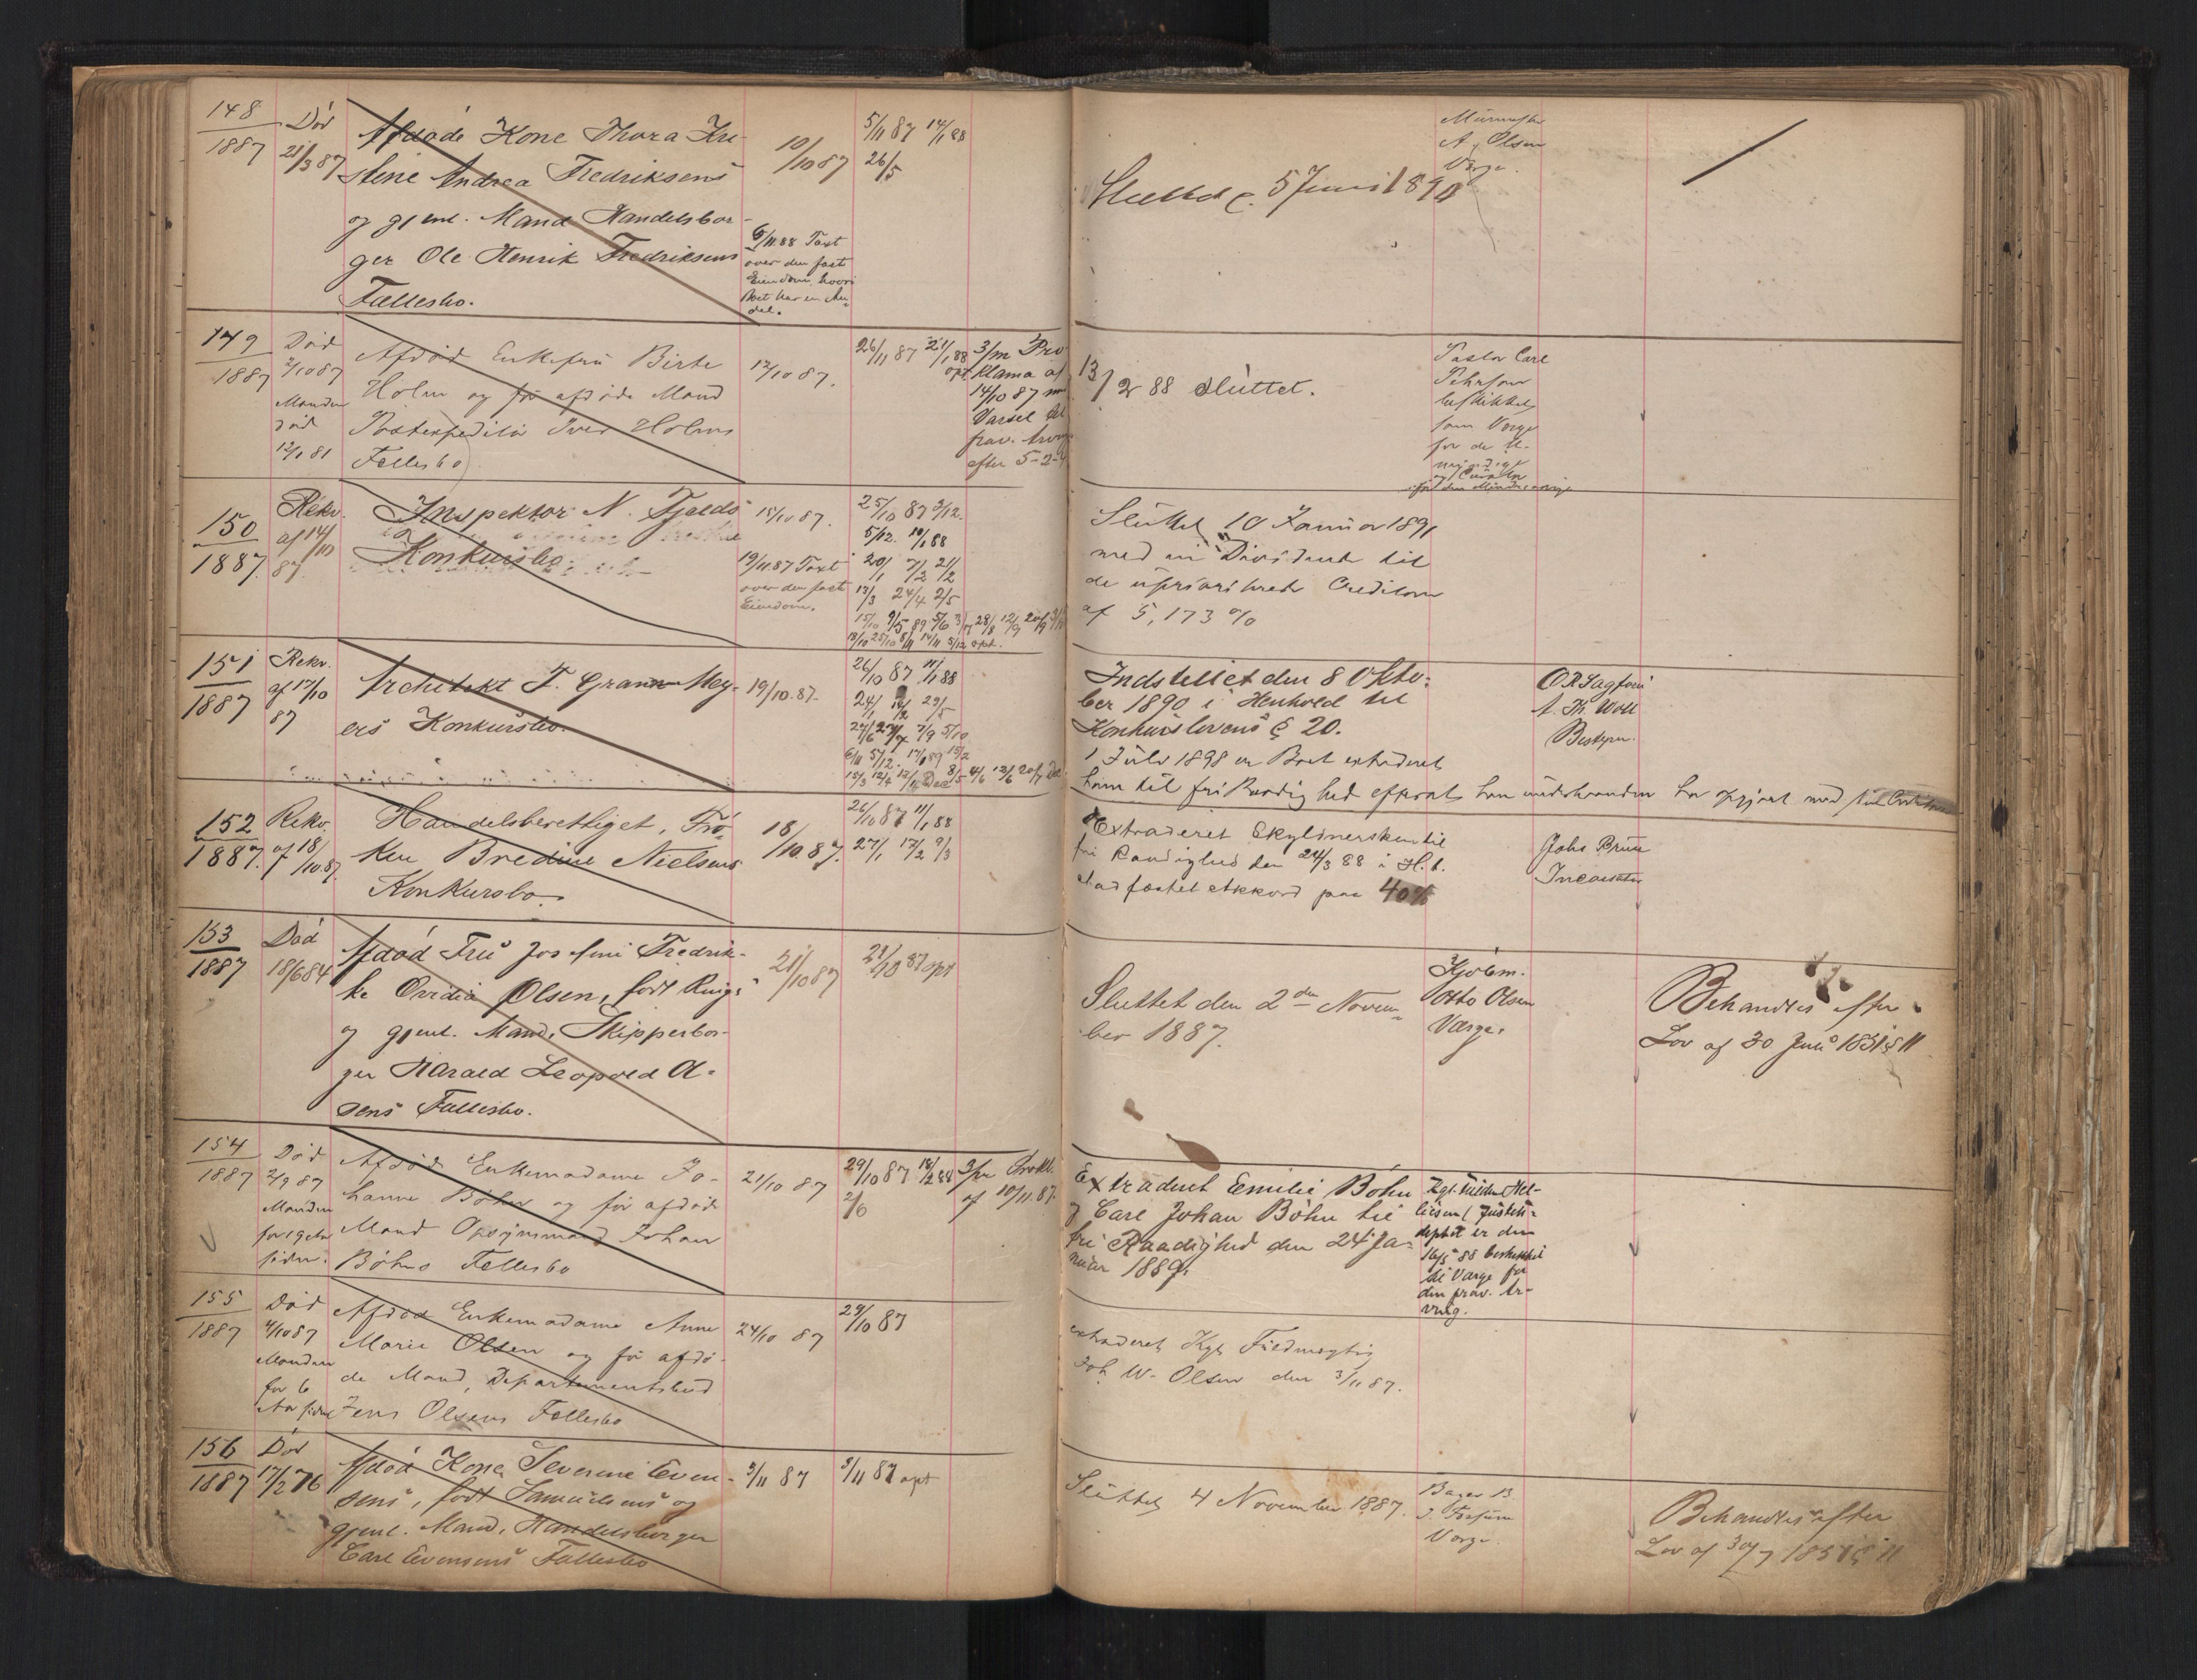 148
1887
Død
21/3 87
Afdøde Kone Thora Kri-
stine Andrea Fredriksens
og gjenl. Mand Handelsbor-
ger Ole Henrik Fredriksens
Fællesbo.
10/10 87
6/11 88 Taxt
over den fast
Eiendom, hvori
Boet har en An-
del.
5/11 87 14/1 88
26/5
Sluttet d. 5 Juni 1890
Murmester
A. Olsen
Værge.
149
1887
Død
2/10 87
Manden
død
12/1 81
Afdød Enkefru Birte
Holm og før afdøde Mand
Postexpeditør Iver Holms
Fællesbo
12/10 87.
26/11 87 21/1 88
opt
3/m Pro
klama af
14/10 87 m
Varsel til
frav. Arving
efter 5-2-4
13/2 88 sluttet.
Pastor Carl
beskikket
som Værge
for de U-
myndige
og Curator
for den Mindreaarige
150
1887.
Rekv.
af 14/10
87
Inspektør N. Fjelds
Konkursbo.
15/10 87.
19/11 87 Taxt
over den fast
Eiendom.
25/10 87 3/12.
5/12. 10/1 88
20/1 7/2 21/2
13/3 24/4 2/5
Sluttet 10 Januar 1891
med en Dividende til
de upriviligerede Creditorer
af 5,173 %
151
1887
Rekv.
af 17/10
87
Architekt F. Grann-Mey-
ers Konkursbo.
19/10. 87.
26/10 87 11/1 88
Indstillet den 8 Okto-
ber 1890 i Henhold til
Konkurslovens § 20.
1 Juli 1898 er Boet extraderet
ham til fri Raadighed efterat han underhaanden har opgjort med sine Creditorer
ORSagfører
Bestyrer.
152
1887.
Rekv.
af 18/10.87.
Handelsberettiget, Frø-
ken Bredine Nielsens
Konkursbo.
18/10. 87.
26/10 87 11/1 88
27/1 17/2 9/3
Extraderet Skyldnersken til
fri Raadighed den 24/3 88 i H. t.
stadfæstet Akkord paa 40%
Johs Bruu
Incassator
153
1887
Død
18/6 84
Afdød Fru Josefine Fredrik-
ke Ovidia Olsen, født Ring,
og gjenl. Mand, Skipperbor-
ger Harald Leopold Ol-
sens Fællesbo.
21/10 87
28/10 87 opt
Sluttet den 2den Novem-
ber 1887.
Kjøbm.
Otto Olsen
Værge.
Behandles efter
Lov af 30 Juli 1851 § 11
154
1887
Død
2/9 87
Manden
for 19 Aar
siden.
Afdød Enkemadame Jo-
hanne Böhn og før afdøde
Mand Opsynsmand Johan
Böhns Fællesbo
21/10 87
29/10 87 18/2 88
2/6
3/m Prokl.
af 10/11.87.
Extraderet Emilie Böhn
og Carl Johan Böhn til
fri Raadighed den 24 Ja-
nuar 1889.
16/5 88 beskikket
til Værge for
den frav. Ar-
ving.
155
1887
Død
4/10 87
Manden
for 6
Aar siden
Afdød Enkemadame Anne
Marie Olsen og før afdø-
de Mand, Departementsbud
Jens Olsens Fællesbo
24/10 87
29/10 87
extraderet Kgl. Fuldmægtig
Joh. W. Olsen den 3/11 87.
156
1887
Død
17/2 76
Afdød Kone Severine Even-
sens, født Samuelsens og
gjenl. Mand, Handelsborger
Carl Evensens Fællesbo
3/11 87
3/11 87 opt
Sluttet 4 November 1887.
Bager B.
Værge.
Behandles efter
Lov af 30/7 1851 § 11